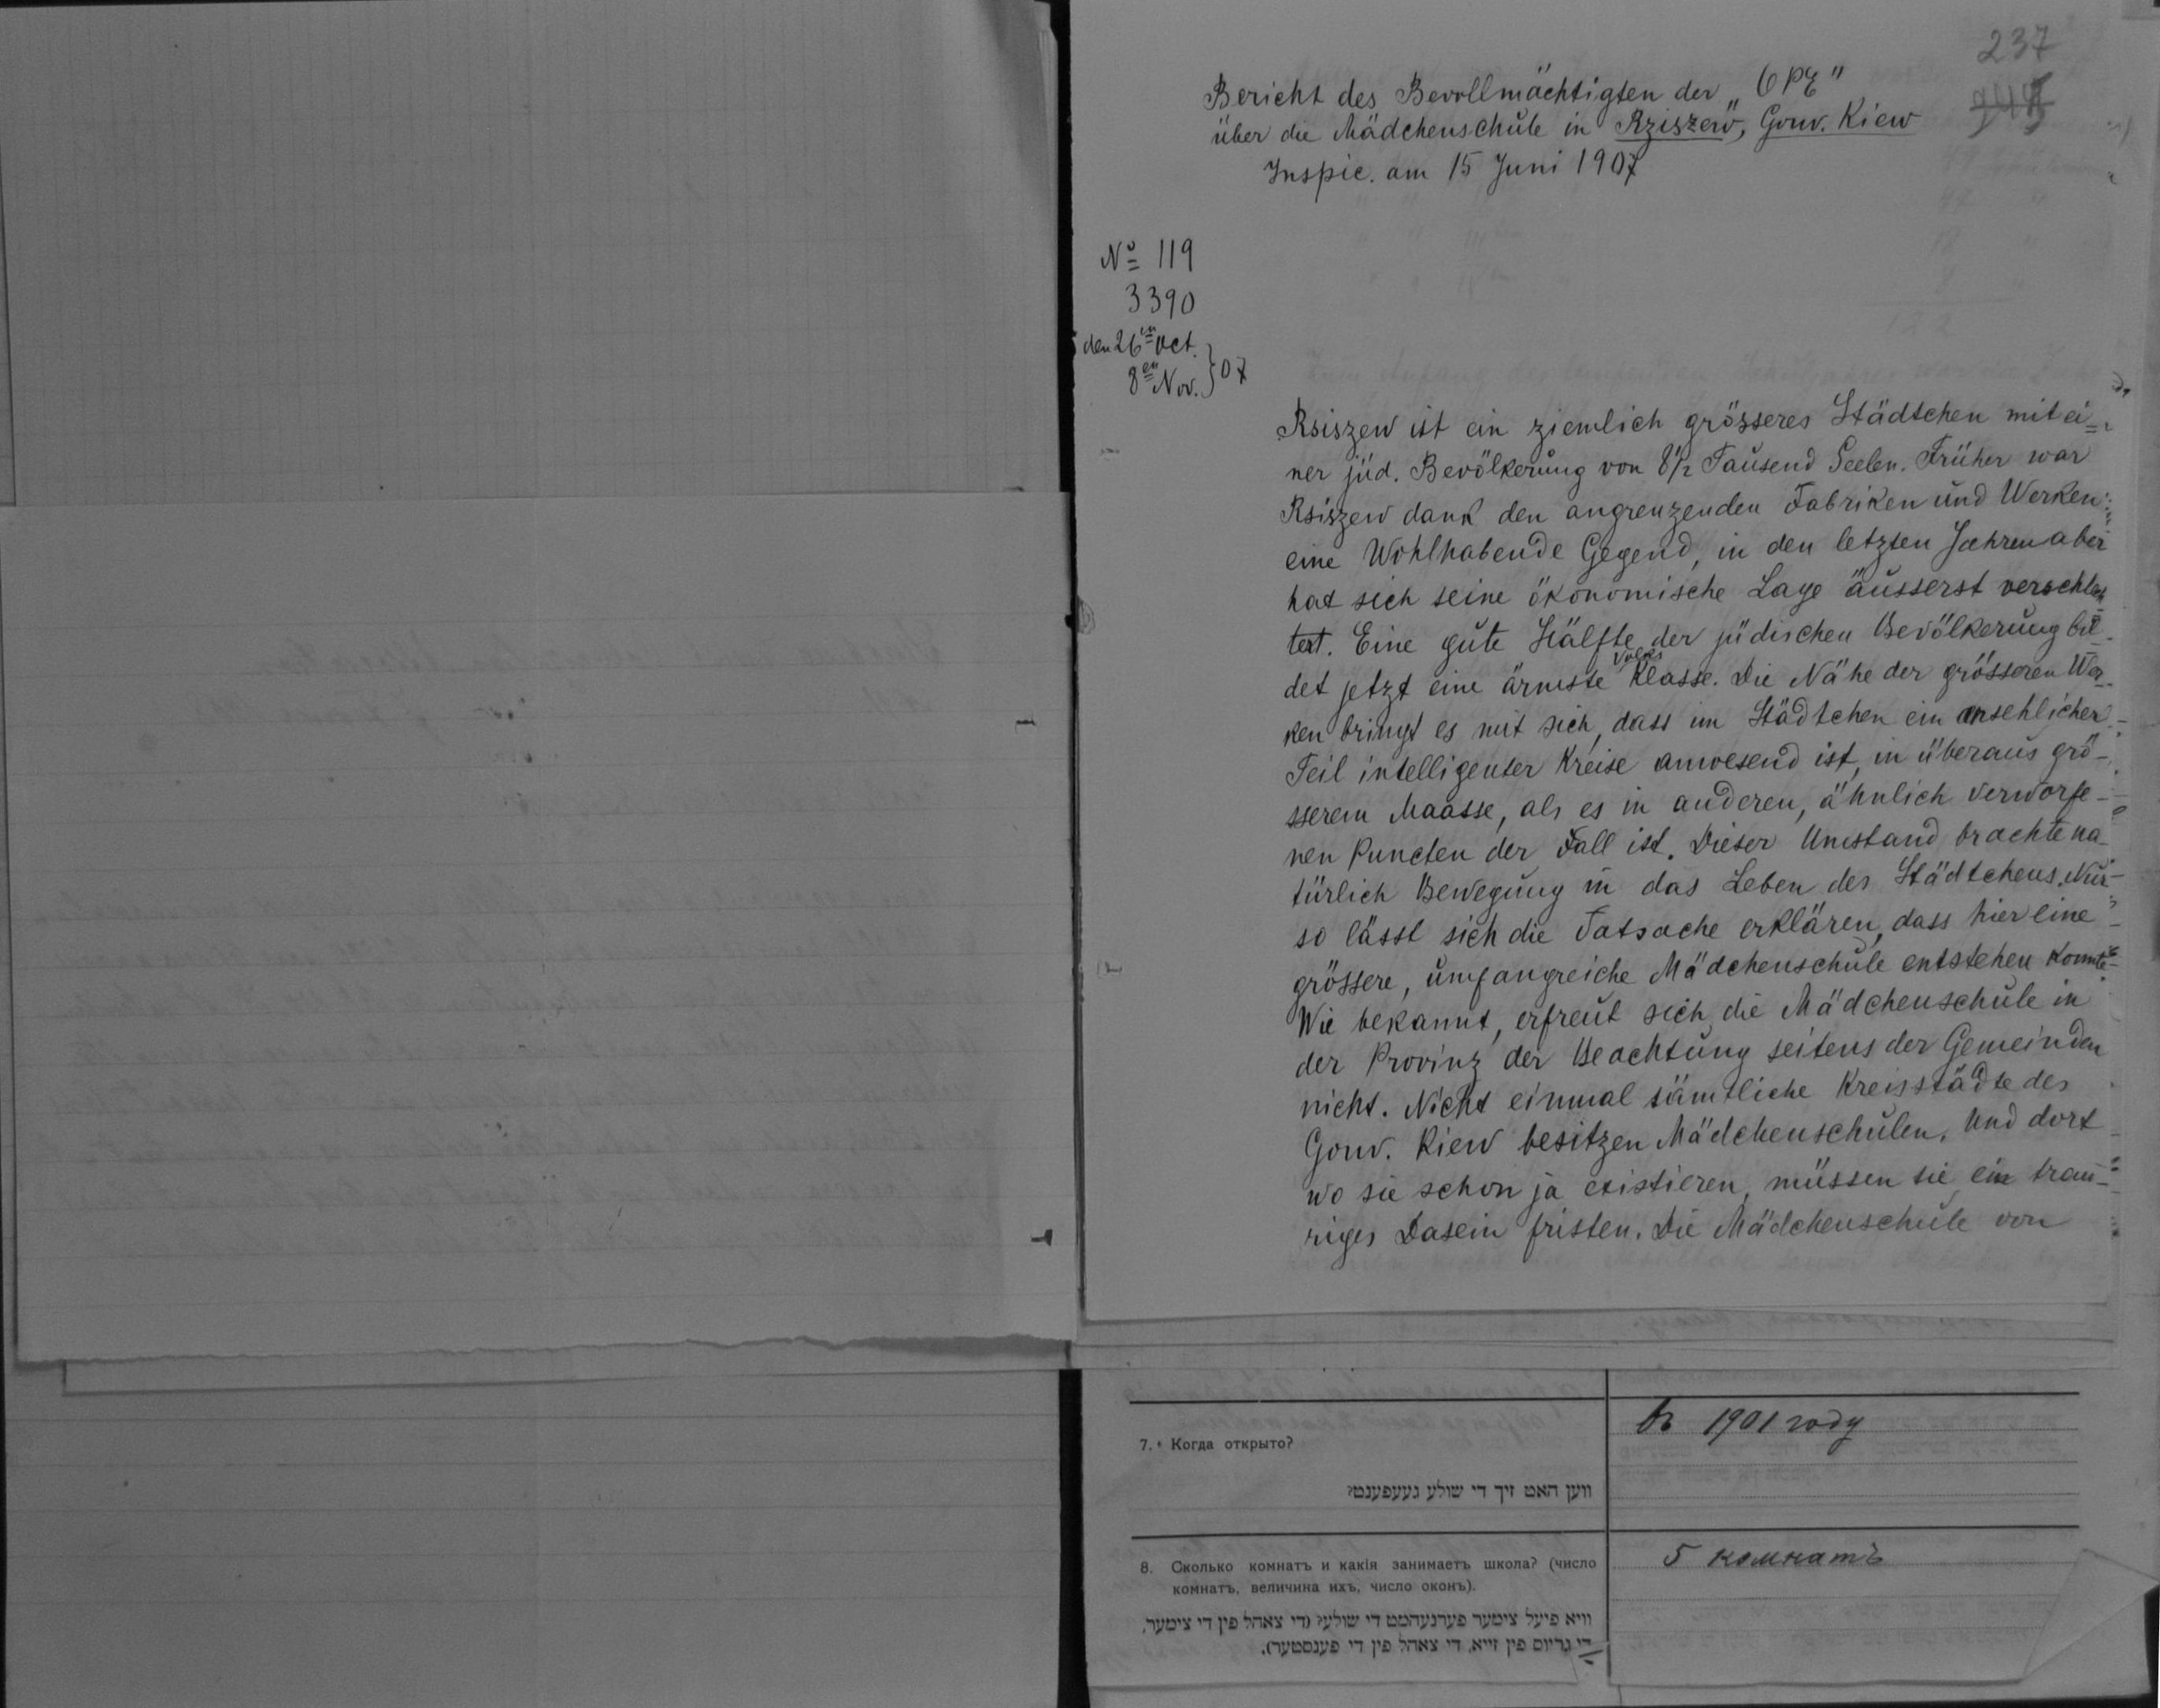 237
Bericht des Bevollmächtigten der „OPE"
über die Mädchenschule in Rziszew, Gouv. Kiew
Inspic. am 15 Juni 1907
№ 119
3390
den 26en Oct.
8en Nov. } 07
Rsiszew ist ein ziemlich grösseres Städtchen mit ei=
ner jüd. Bevölkerung von 8½ Tausend Seelen. Früher war
Rsiszew dank den angrenzenden Fabriken und Werken
eine Wohlhabende Gegend, in den letzten Jahren aber
hat sich seine ökonomische Lage äusserst verschlech
tert. Eine gute Hälfte der jüdischen Bevölkerung bil-
det jetzt eine ärmste Volks Klasse. Die Nähe der grösseren Wer-
ken bringt es mit sich, dass im Städtchen ein ansehlicher
Teil intelligenter Kreise anwesend ist, in überaus grö-
sserem Maasse, als es in anderen, ähnlich verworfe-
nen Puncten der Fall ist. Dieser Umstand brachte na-
türlich Bewegung in das Leben des Städtchens. Nur
so lässt sich die Tatsache erklären, dass hier eine
grössere, umfangreiche Mädchenschule entstehen konnte.
Wie bekannt, erfreut sich die Mädchenschule in
der Provinz der Beachtung seitens der Gemeinden
nicht. Nicht einmal sämtliche Kreisstädte des
Gouv. Kiew besitzen Mädchenschulen. Und dort
wo sie schon ja existieren, müssen sie ein trau-
riges Dasein fristen. Die Mädchenschule von
7. Когда открыто?
въ 1901 году
ווען האט זיך די שולע געעפענט?
8. Сколько комнатъ и какія занимаетъ школа? (число
комнатъ, величина ихъ, число оконъ).
5 комнатъ
וויא פיעל צימער פערנעהמט די שולע? (די צאהל פין די צימער,
די גרויס פין זייא, די צאהל פין די פענסטער).